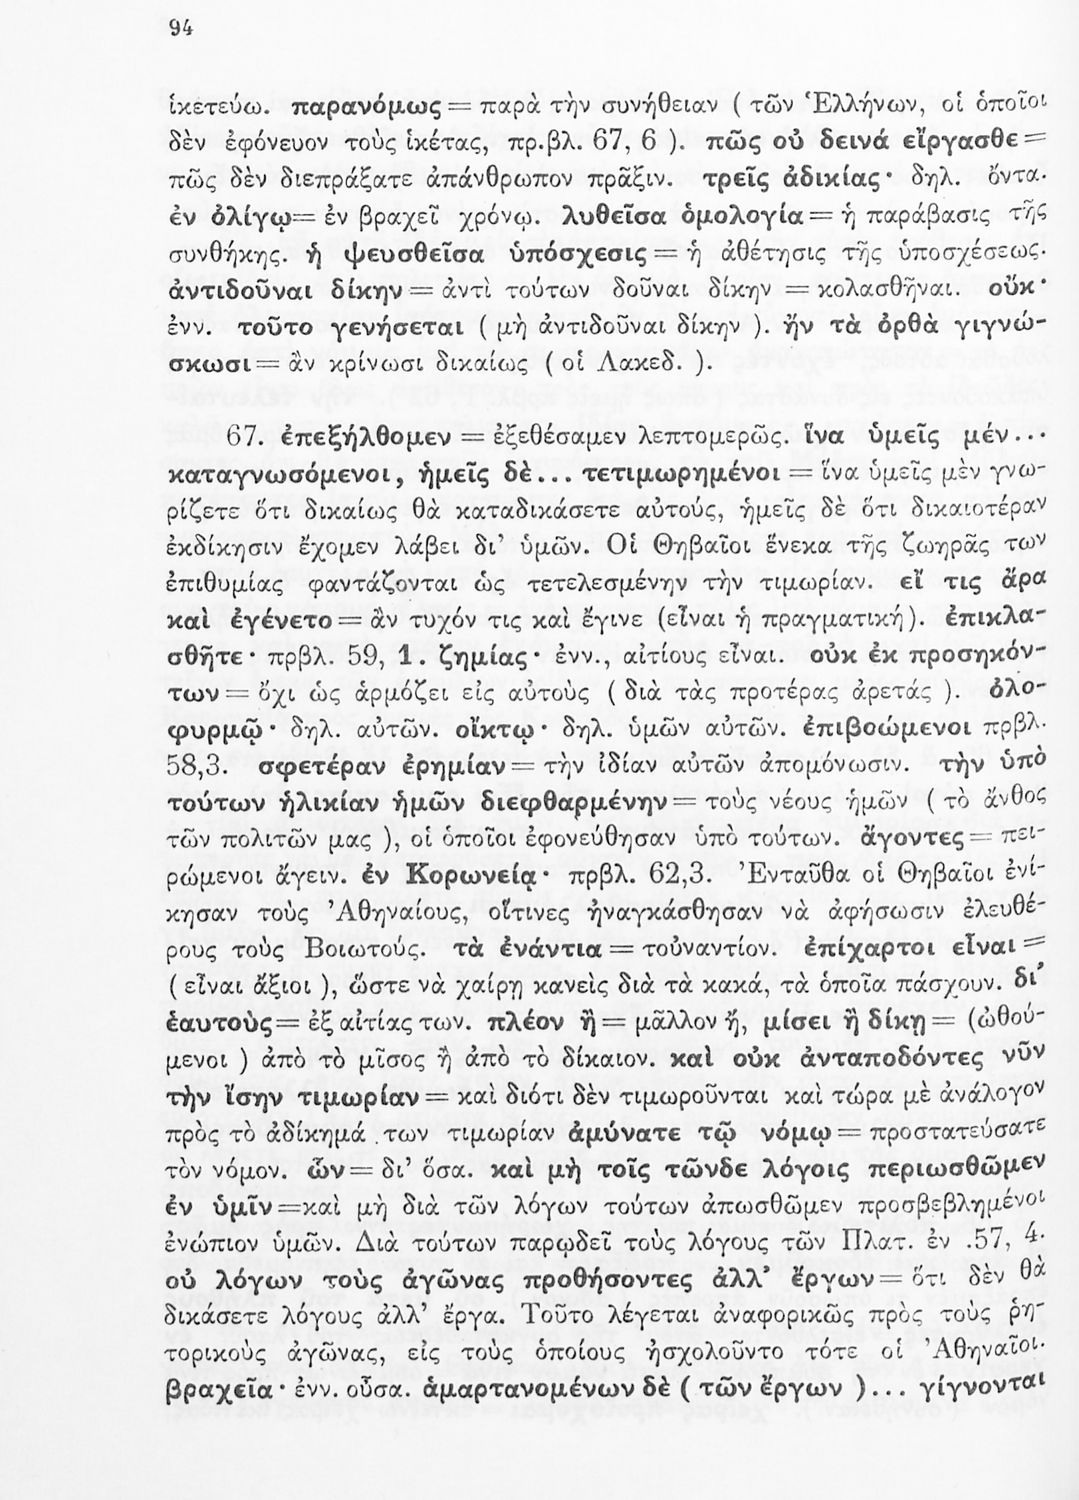 94
ἱκετεύω. παρανόμως = παρὰ τὴν συνήθειαν ( τῶν Ἑλλήνων, οἱ ὁποῖοι
δὲν ἐφόνευον τοὺς ἱκέτας, πρ.βλ. 67, 6 ). πῶς οὐ δεινά εἴργασθε =
πῶς δὲν διεπράξατε ἀπάνθρωπον πρᾶξιν. τρεῖς ἀδικίας· δηλ. ὄντα.
ἐν ὀλίγῳ = ἐν βραχεῖ χρόνῳ. λυθεῖσα ὁμολογία = ἡ παράβασις τῆς
συνθήκης. ἡ ψευσθεῖσα ὑπόσχεσις = ἡ ἀθέτησις τῆς ὑποσχέσεως.
ἀντιδοῦναι δίκην = ἀντὶ τούτων δοῦναι δίκην = κολασθῆναι. οὔκ·
ἐνν. τοῦτο γενήσεται ( μὴ ἀντιδοῦναι δίκην ). ἤν τὰ ὀρθὰ γιγνώ-
σκωσι = ἂν κρίνωσι δικαίως ( οἱ Λακεδ. ).
67. ἐπεξήλθομεν = ἐξεθέσαμεν λεπτομερῶς. ἵνα ὑμεῖς μέν...
καταγνωσόμενοι, ἡμεῖς δὲ... τετιμωρημένοι = ἵνα ὑμεῖς μὲν γνω-
ρίζετε ὅτι δικαίως θὰ καταδικάσετε αὐτούς, ἡμεῖς δὲ ὅτι δικαιοτέραν
ἐκδίκησιν ἔχομεν λάβει δι' ὑμῶν. Οἱ Θηβαῖοι ἕνεκα τῆς ζωηρᾶς των
ἐπιθυμίας φαντάζονται ὡς τετελεσμένην τὴν τιμωρίαν. εἴ τις ἄρα
καὶ ἐγένετο = ἂν τυχόν τις καὶ ἔγινε (εἶναι ἡ πραγματική). ἐπικλα-
σθῆτε· πρβλ. 59, 1. ζημίας· ἐνν., αἰτίους εἶναι. οὐκ ἐκ προσηκόν-
των = ὄχι ὡς ἁρμόζει εἰς αὐτοὺς ( διὰ τὰς προτέρας ἀρετάς ). ὀλο-
φυρμῷ· δηλ. αὐτῶν. οἴκτῳ· δηλ. ὑμῶν αὐτῶν. ἐπιβοώμενοι πρβλ.
58,3. σφετέραν ἐρημίαν = τὴν ἰδίαν αὐτῶν ἀπομόνωσιν. τὴν ὑπὸ
τούτων ἡλικίαν ἡμῶν διεφθαρμένην = τοὺς νέους ἡμῶν ( τὸ ἄνθος
τῶν πολιτῶν μας ), οἱ ὁποῖοι ἐφονεύθησαν ὑπὸ τούτων. ἄγοντες = πει-
ρώμενοι ἄγειν. ἐν Κορωνείᾳ· πρβλ. 62,3. Ἐνταῦθα οἱ Θηβαῖοι ἐνί-
κησαν τοὺς Ἀθηναίους, οἵτινες ἠναγκάσθησαν νὰ ἀφήσωσιν ἐλευθέ-
ρους τοὺς Βοιωτούς. τὰ ἐνάντια = τοὐναντίον. ἐπίχαρτοι εἶναι =
( εἶναι ἄξιοι ), ὥστε νὰ χαίρῃ κανεὶς διὰ τὰ κακά, τὰ ὁποῖα πάσχουν. δι'
ἑαυτοὺς = ἐξ αἰτίας των. πλέον ἢ = μᾶλλον ἤ, μίσει ἢ δίκῃ = (ὠθού-
μενοι ) ἀπὸ τὸ μῖσος ἢ ἀπὸ τὸ δίκαιον. καὶ οὐκ ἀνταποδόντες νῦν
τὴν ἴσην τιμωρίαν = καὶ διότι δὲν τιμωροῦνται καὶ τώρα μὲ ἀνάλογον
πρὸς τὸ ἀδίκημά των τιμωρίαν ἀμύνατε τῷ νόμῳ = προστατεύσατε
τὸν νόμον. ὧν = δι' ὅσα. καὶ μὴ τοῖς τῶνδε λόγοις περιωσθῶμεν
ἐν ὑμῖν = καὶ μὴ διὰ τῶν λόγων τούτων ἀπωσθῶμεν προσβεβλημένοι
ἐνώπιον ὑμῶν. Διὰ τούτων παρῳδεῖ τοὺς λόγους τῶν Πλατ. ἐν .57, 4.
οὐ λόγων τοὺς ἀγῶνας προθήσοντες ἀλλ' ἔργων = ὅτι δὲν θὰ
δικάσετε λόγους ἀλλ' ἔργα. Τοῦτο λέγεται ἀναφορικῶς πρὸς τοὺς ῥη-
τορικοὺς ἀγῶνας, εἰς τοὺς ὁποίους ἠσχολοῦντο τότε οἱ Ἀθηναῖοι.
βραχεῖα· ἐνν. οὖσα. ἁμαρτανομένων δὲ ( τῶν ἔργων )... γίγνονται